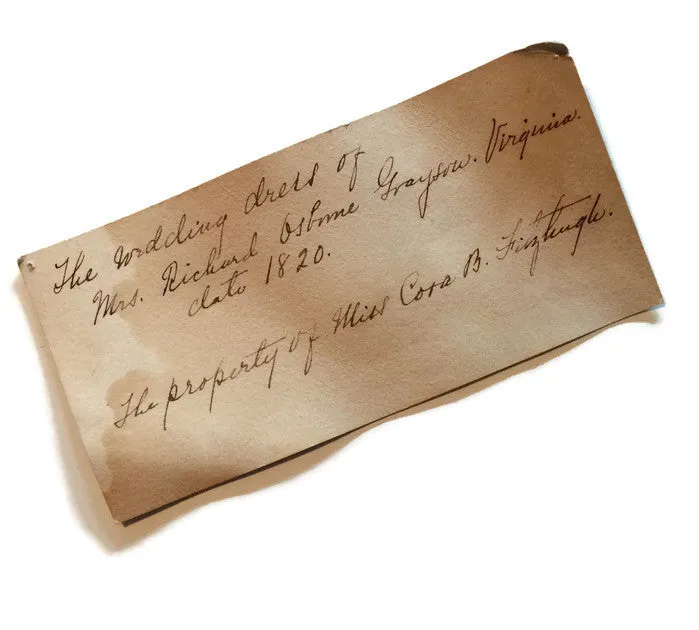 The wedding dress of
Mrs. Richard Osborne Grayson. Virginia.
date 1820.
The property of Miss Cora B. Fitzhugh.